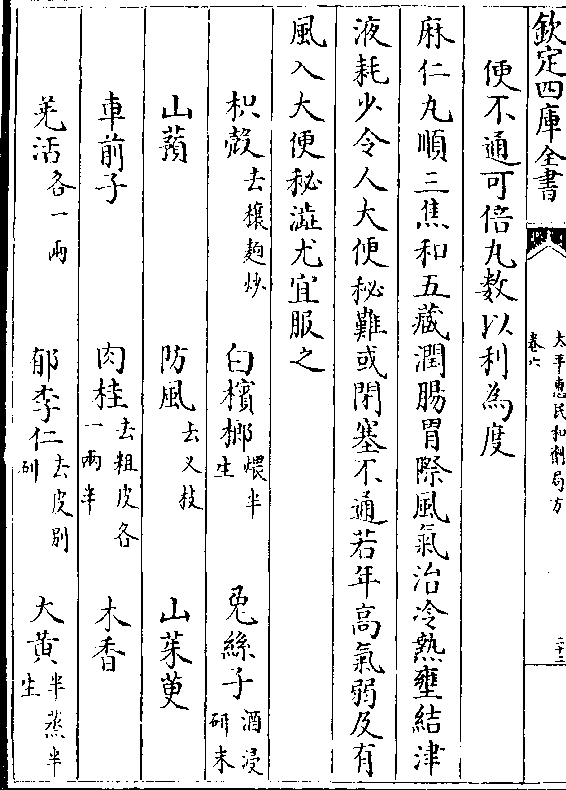 欽定四庫全書
太平惠民和劑局方
卷六
二十三
便不通可倍丸數以利為度
麻仁丸順三焦和五藏潤腸胃際風氣治冷熱壅結津
液耗少令人大便秘難或閉塞不通若年高氣弱及有
風入大便秘澁尤宜服之
枳殼去穰麩炒 白檳榔煨半生 兎絲子酒浸研末
山蕷 防風去义枝 山茱萸
車前子 肉桂去粗皮各一兩半 木香
羌活各一兩 郁李仁去皮別研 大黄半蒸半生